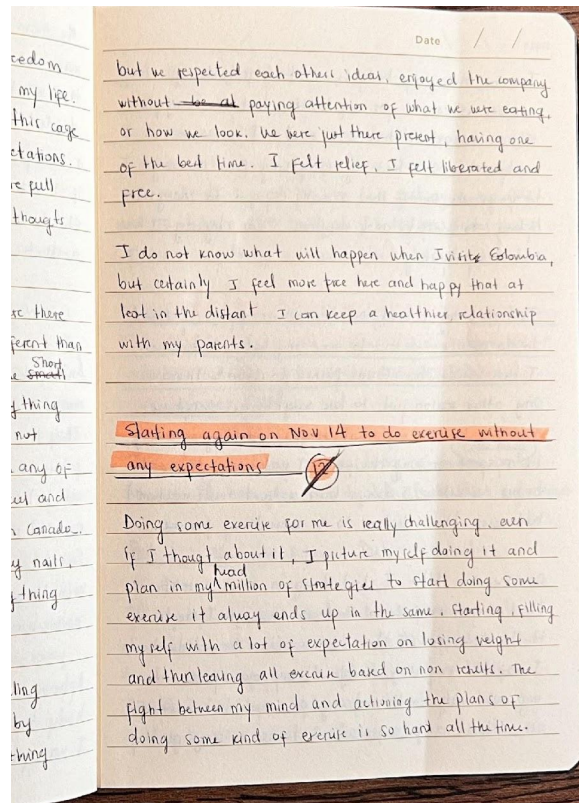 cedom
my life.
this cage
ctations.
re full
thoughts
se there
ferent than
Short
e small
y thing
not
any of
uel and
n Canada.
y nails,
y thing
ling
by
thing
Date / /
but we respected each others ideas, enjoyed the company
without be al paying attention of what we were eating,
or how we look. We were just there present, having one
of the best time. I felt relief, I felt liberated and
free.
I do not know what will happen when I visit Colombia,
but certainly I feel more free here and happy that at
leat in the distant I can keep a healthier relationship
with my parents.
Starting again on Nov 14 to do exercise without
any expectations 12
Doing some exercise for me is really challenging, even
if I thought about it, I picture myself doing it and
head
plan in my million of strategies to start doing some
exercise it alway ends up in the same. Starting, filling
myself with a lot of expectation on losing weight
and then leaving all exercise based on non results. The
fight between my mind and actioning the plans of
doing some kind of exercise is so hard all the time.